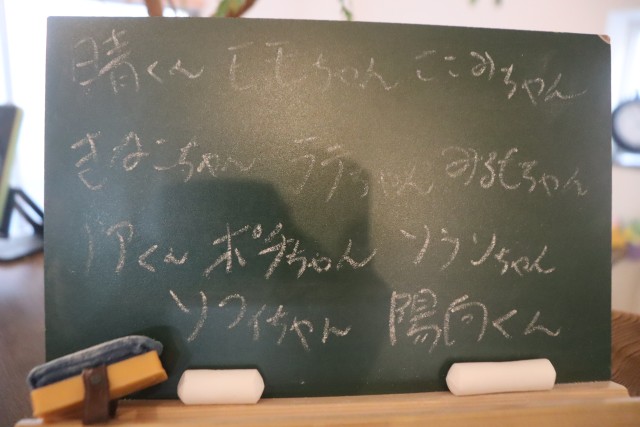 晴くん モモちゃん ここみちゃん
きなこちゃん ラテちゃん みるくちゃん
ノアくん ポチちゃん ソランちゃん
ソフィちゃん 陽向くん